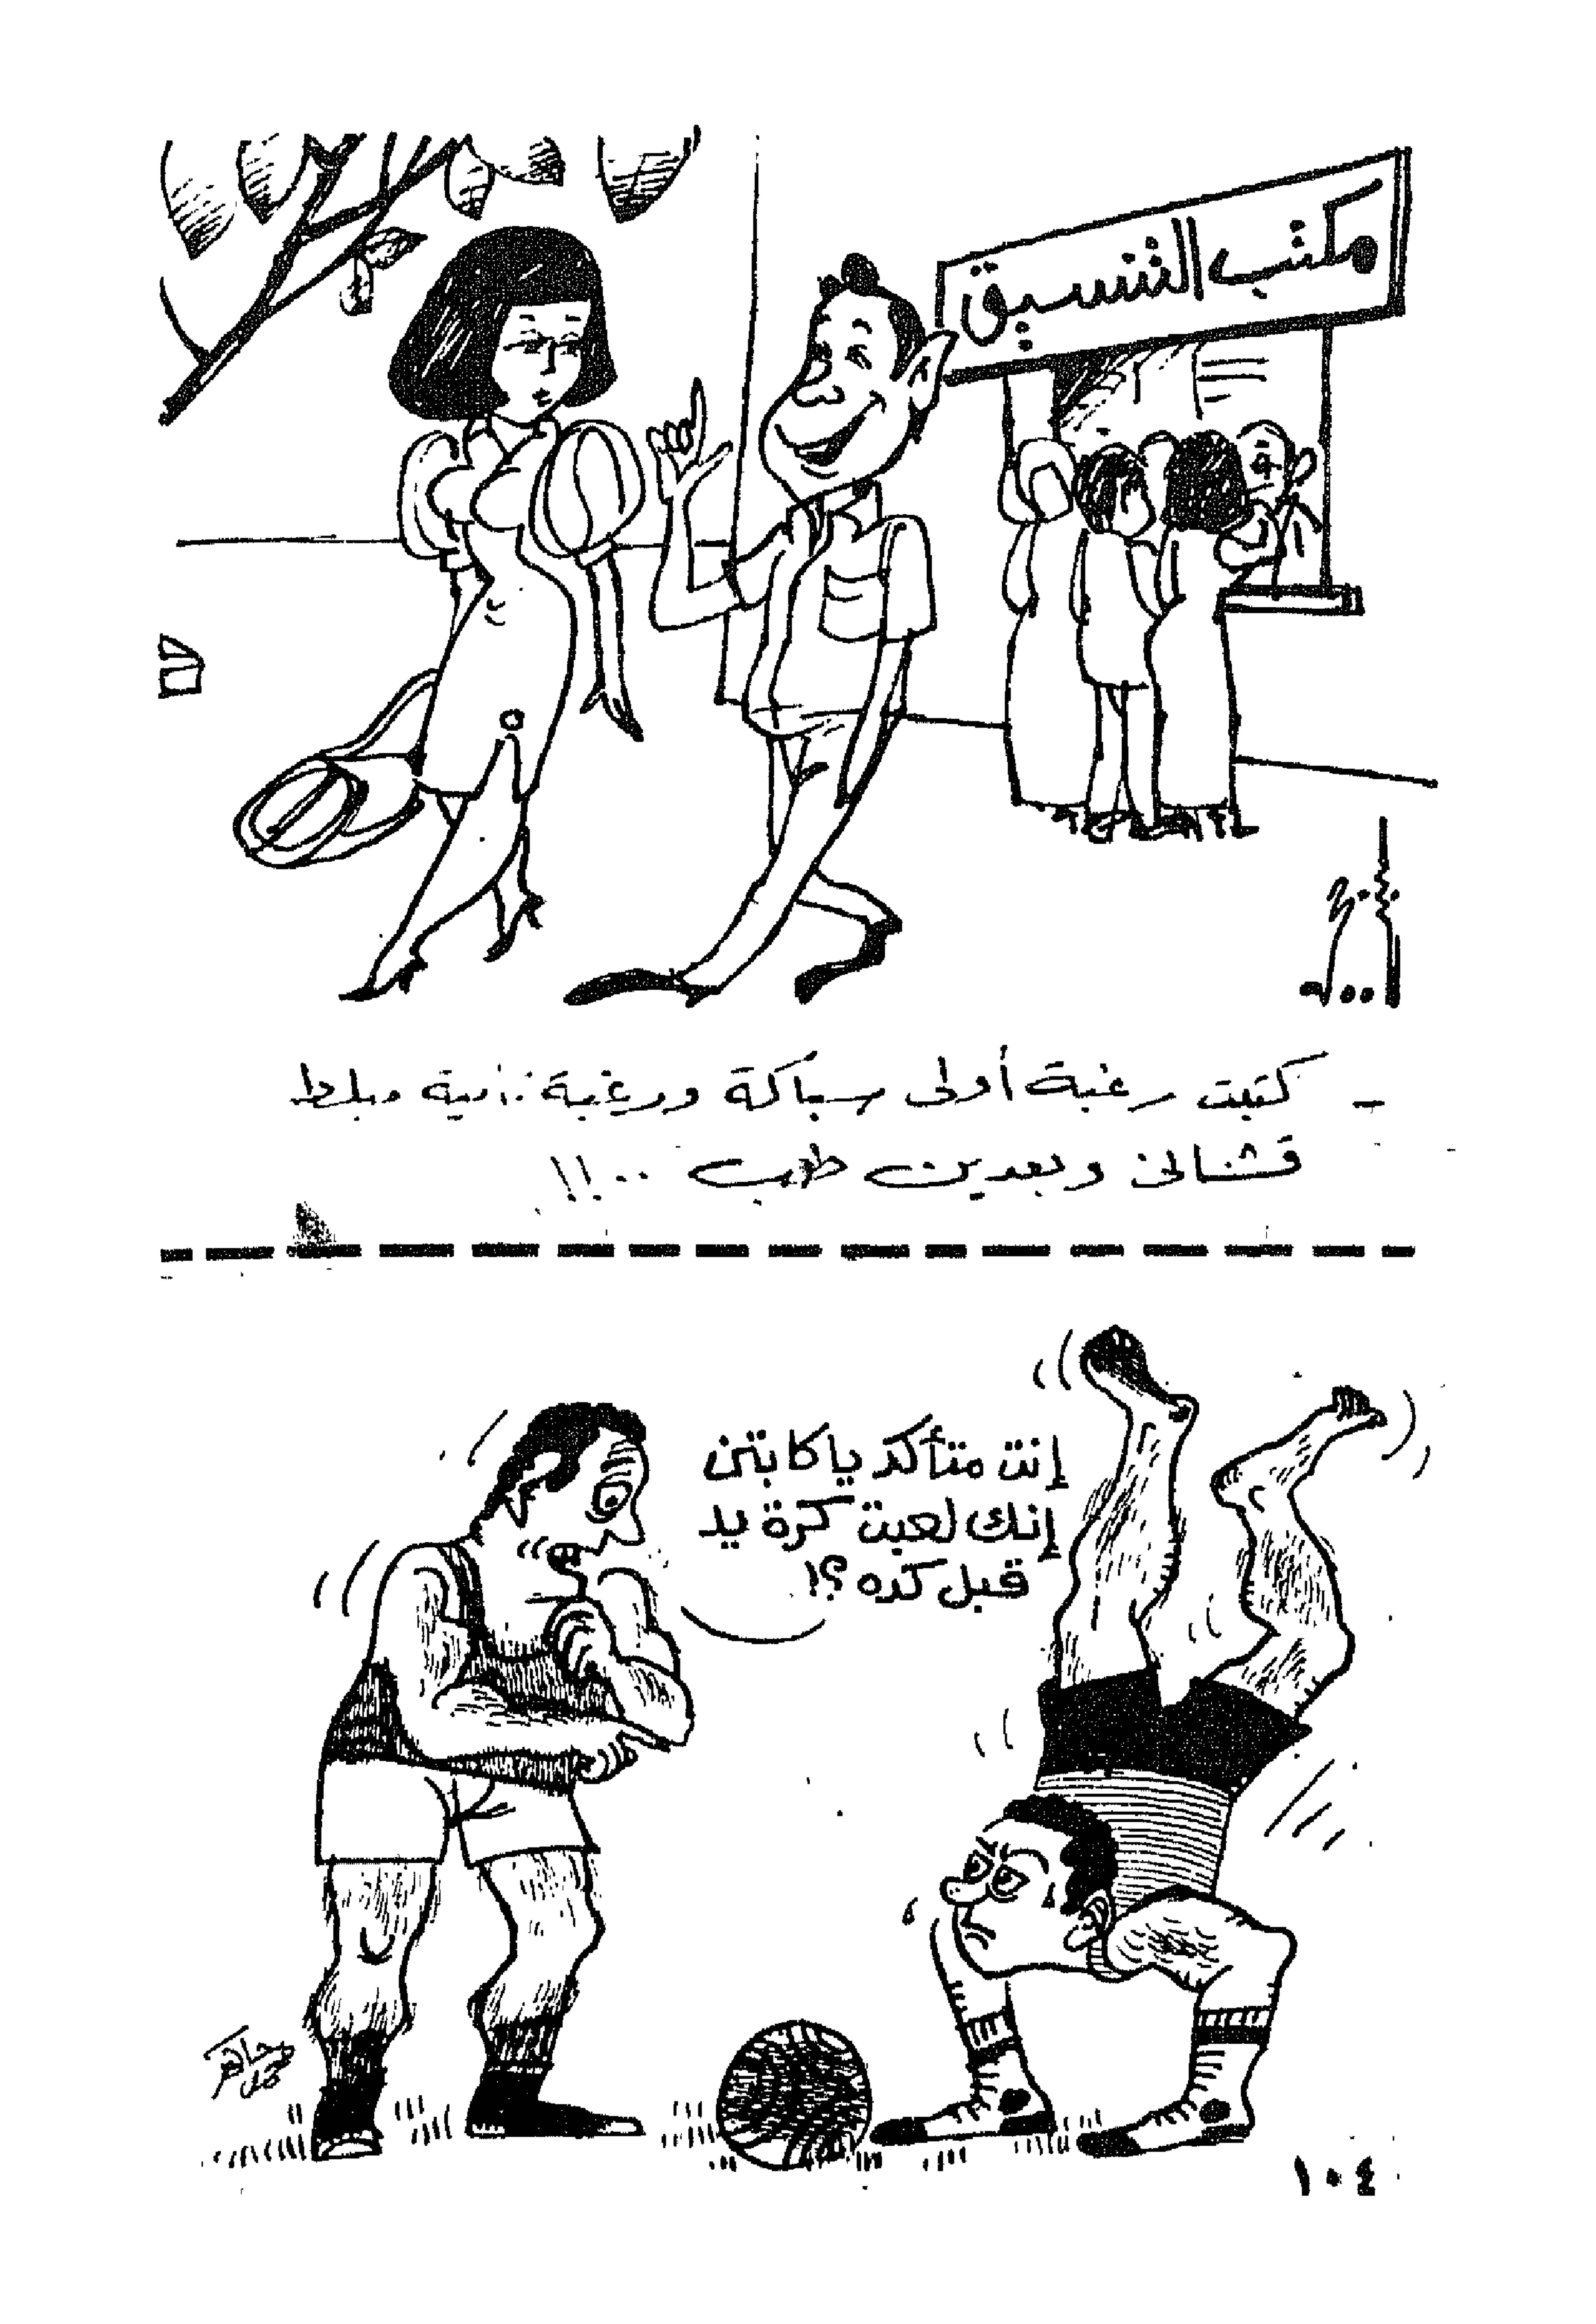 مكتب التنسيق
- كتبت رغبة أولى سباكة ورغبة ثانية مبلط
قشنانى وبعدين طب ..!!
إنت متأكد ياكابتن
إنك لعبت كرة يد
قبل كده؟!
١٠٤